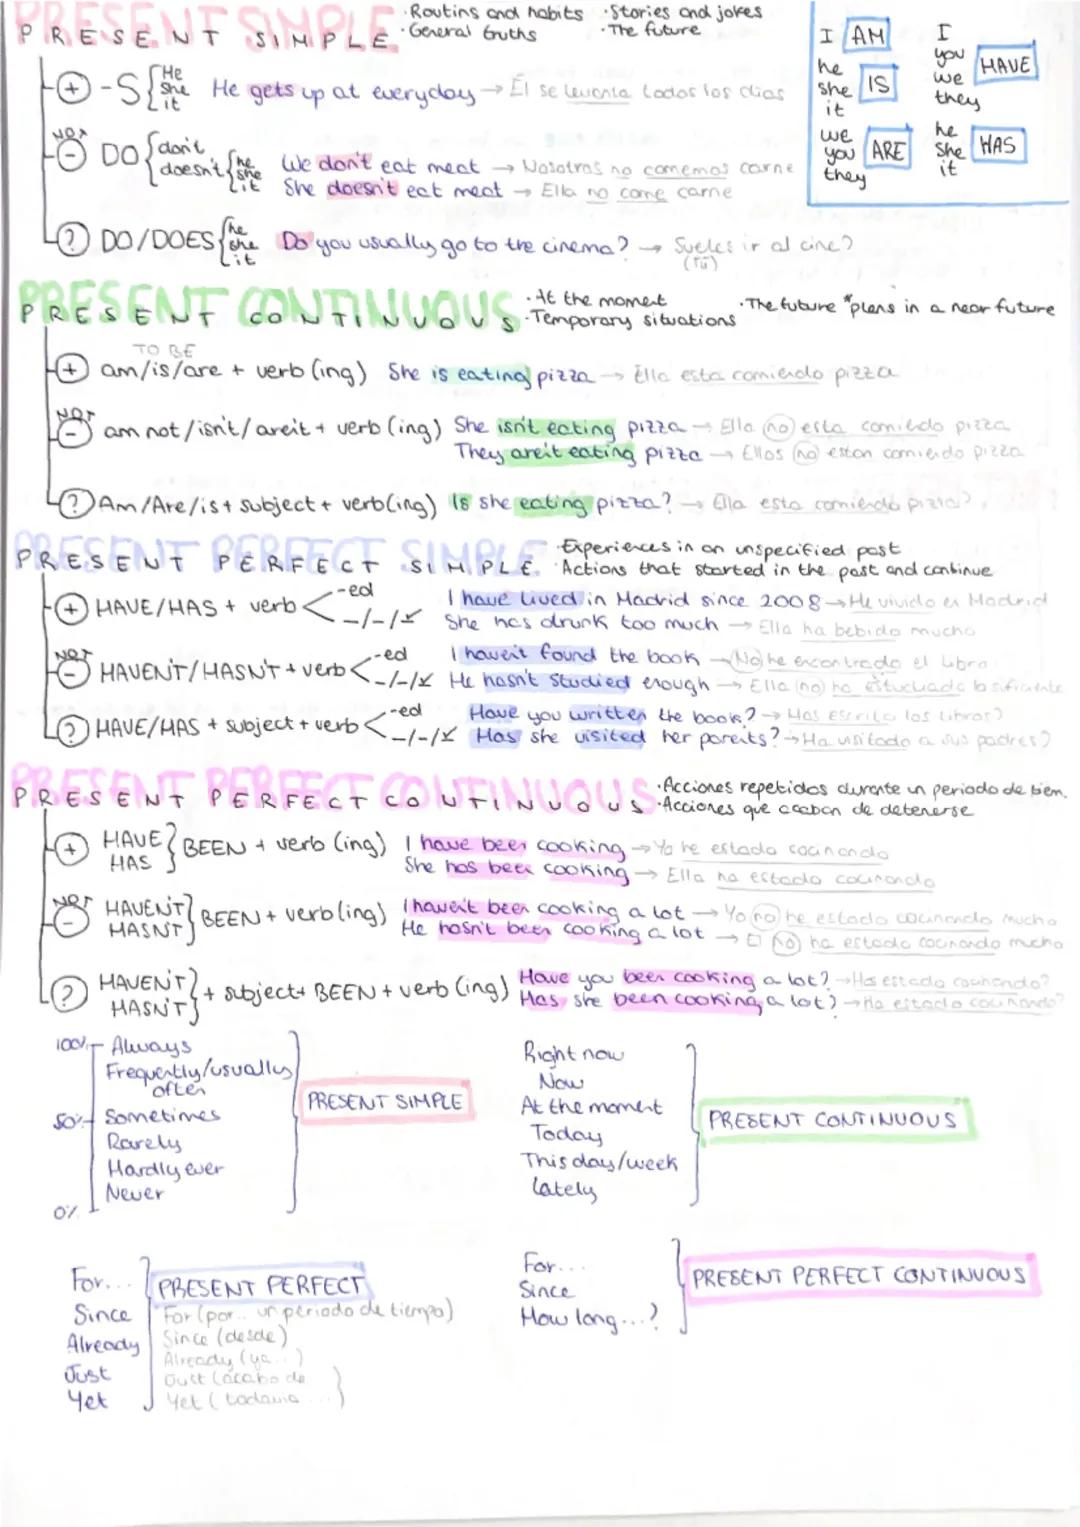 PRESENT SIMPLE
· Routins and habits · Stories and jokes
· General truths · The future
+ -S { He She it He gets up at everyday → Él se levanta todos los dias
NOT - DO { don't doesn't { he she it We don't eat meat → Nosotros no comemos carne
She doesn't eat meat → Ella no come carne
? DO/DOES { he she it Do you usually go to the cinema? → Sueles ir al cine?
(Tú)
I AM
he she it IS
we you they ARE
I you we they HAVE
he she it HAS
PRESENT CONTINUOUS
· At the moment · The future *plans in a near future
· Temporary situations
TO BE
+ am/is/are + verb (ing) She is eating pizza → Ella esta comiendo pizza
NOT - am not/isn't/aren't + verb (ing) She isn't eating pizza → Ella no esta comiedo pizza
They aren't eating pizza → Ellos no estan comiendo pizza
? Am/Are/is + subject + verb(ing) Is she eating pizza? → Ella esta comiendo pizza?
PRESENT PERFECT SIMPLE
· Experiences in an unspecified past
· Actions that started in the past and continue
+ HAVE/HAS + verb < -ed -/-/ I have lived in Madrid since 2008 → He vivido en Madrid
She has drunk too much → Ella ha bebido mucho
NOT - HAVEN'T/HASN'T + verb < -ed -/-/ I haven't found the book → No he encontrado el libro
He hasn't studied enough → Ella no ha estuchado lo suficiente
? HAVE/HAS + subject + verb < -ed -/-/ Have you written the book? → Has escrito los libros?
Has she visited her parents? → Ha visitado a sus padres?
PRESENT PERFECT CONTINUOUS
· Acciones repetidas durante un periodo de tiem.
· Acciones que acaban de detenerse
+ HAVE HAS } BEEN + verb (ing) I have been cooking → Yo he estado cocinando
She has been cooking → Ella ha estado cocinando
NOT - HAVEN'T HASN'T } BEEN + verb (ing) I haven't been cooking a lot → Yo no he estado cocinando mucho
He hasn't been cooking a lot → El no ha estado cocinando mucho
? HAVEN'T HASN'T } + subject + BEEN + verb (ing) Have you been cooking a lot? → Has estado cocinando?
Has she been cooking a lot? → Ha estado cocinando?
100% Always
Frequently/usually
often
50% Sometimes
Rarely
Hardly ever
Never
0%
PRESENT SIMPLE
Right now
Now
At the moment
Today
This day/week
Lately
PRESENT CONTINUOUS
For...
Since
Already
Just
Yet
PRESENT PERFECT
For (por... un periodo de tiempo)
Since (desde)
Already (ya...)
Just (acabo de
Yet (todavia ...)
For...
Since
How long...?
PRESENT PERFECT CONTINUOUS